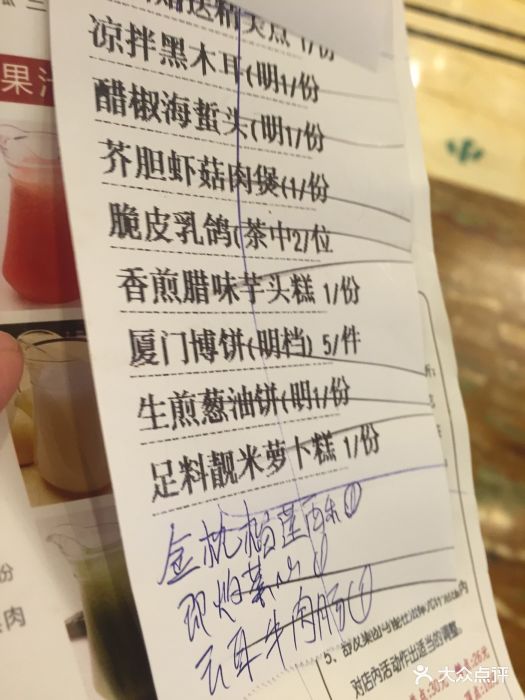 赠送精美点 1/份
凉拌黑木耳(明1/份
醋椒海蜇头(明1/份
芥胆虾菇肉煲(1/份
脆皮乳鸽(茶中2/位
香煎腊味芋头糕 1/份
厦门博饼(明档) 5/件
生煎葱油饼(明1/份
足料靓米萝卜糕 1/份
即灼菜心
云耳牛肉肠①
果汁
份
肉
对店内活动作出适当的调整。
大众点评